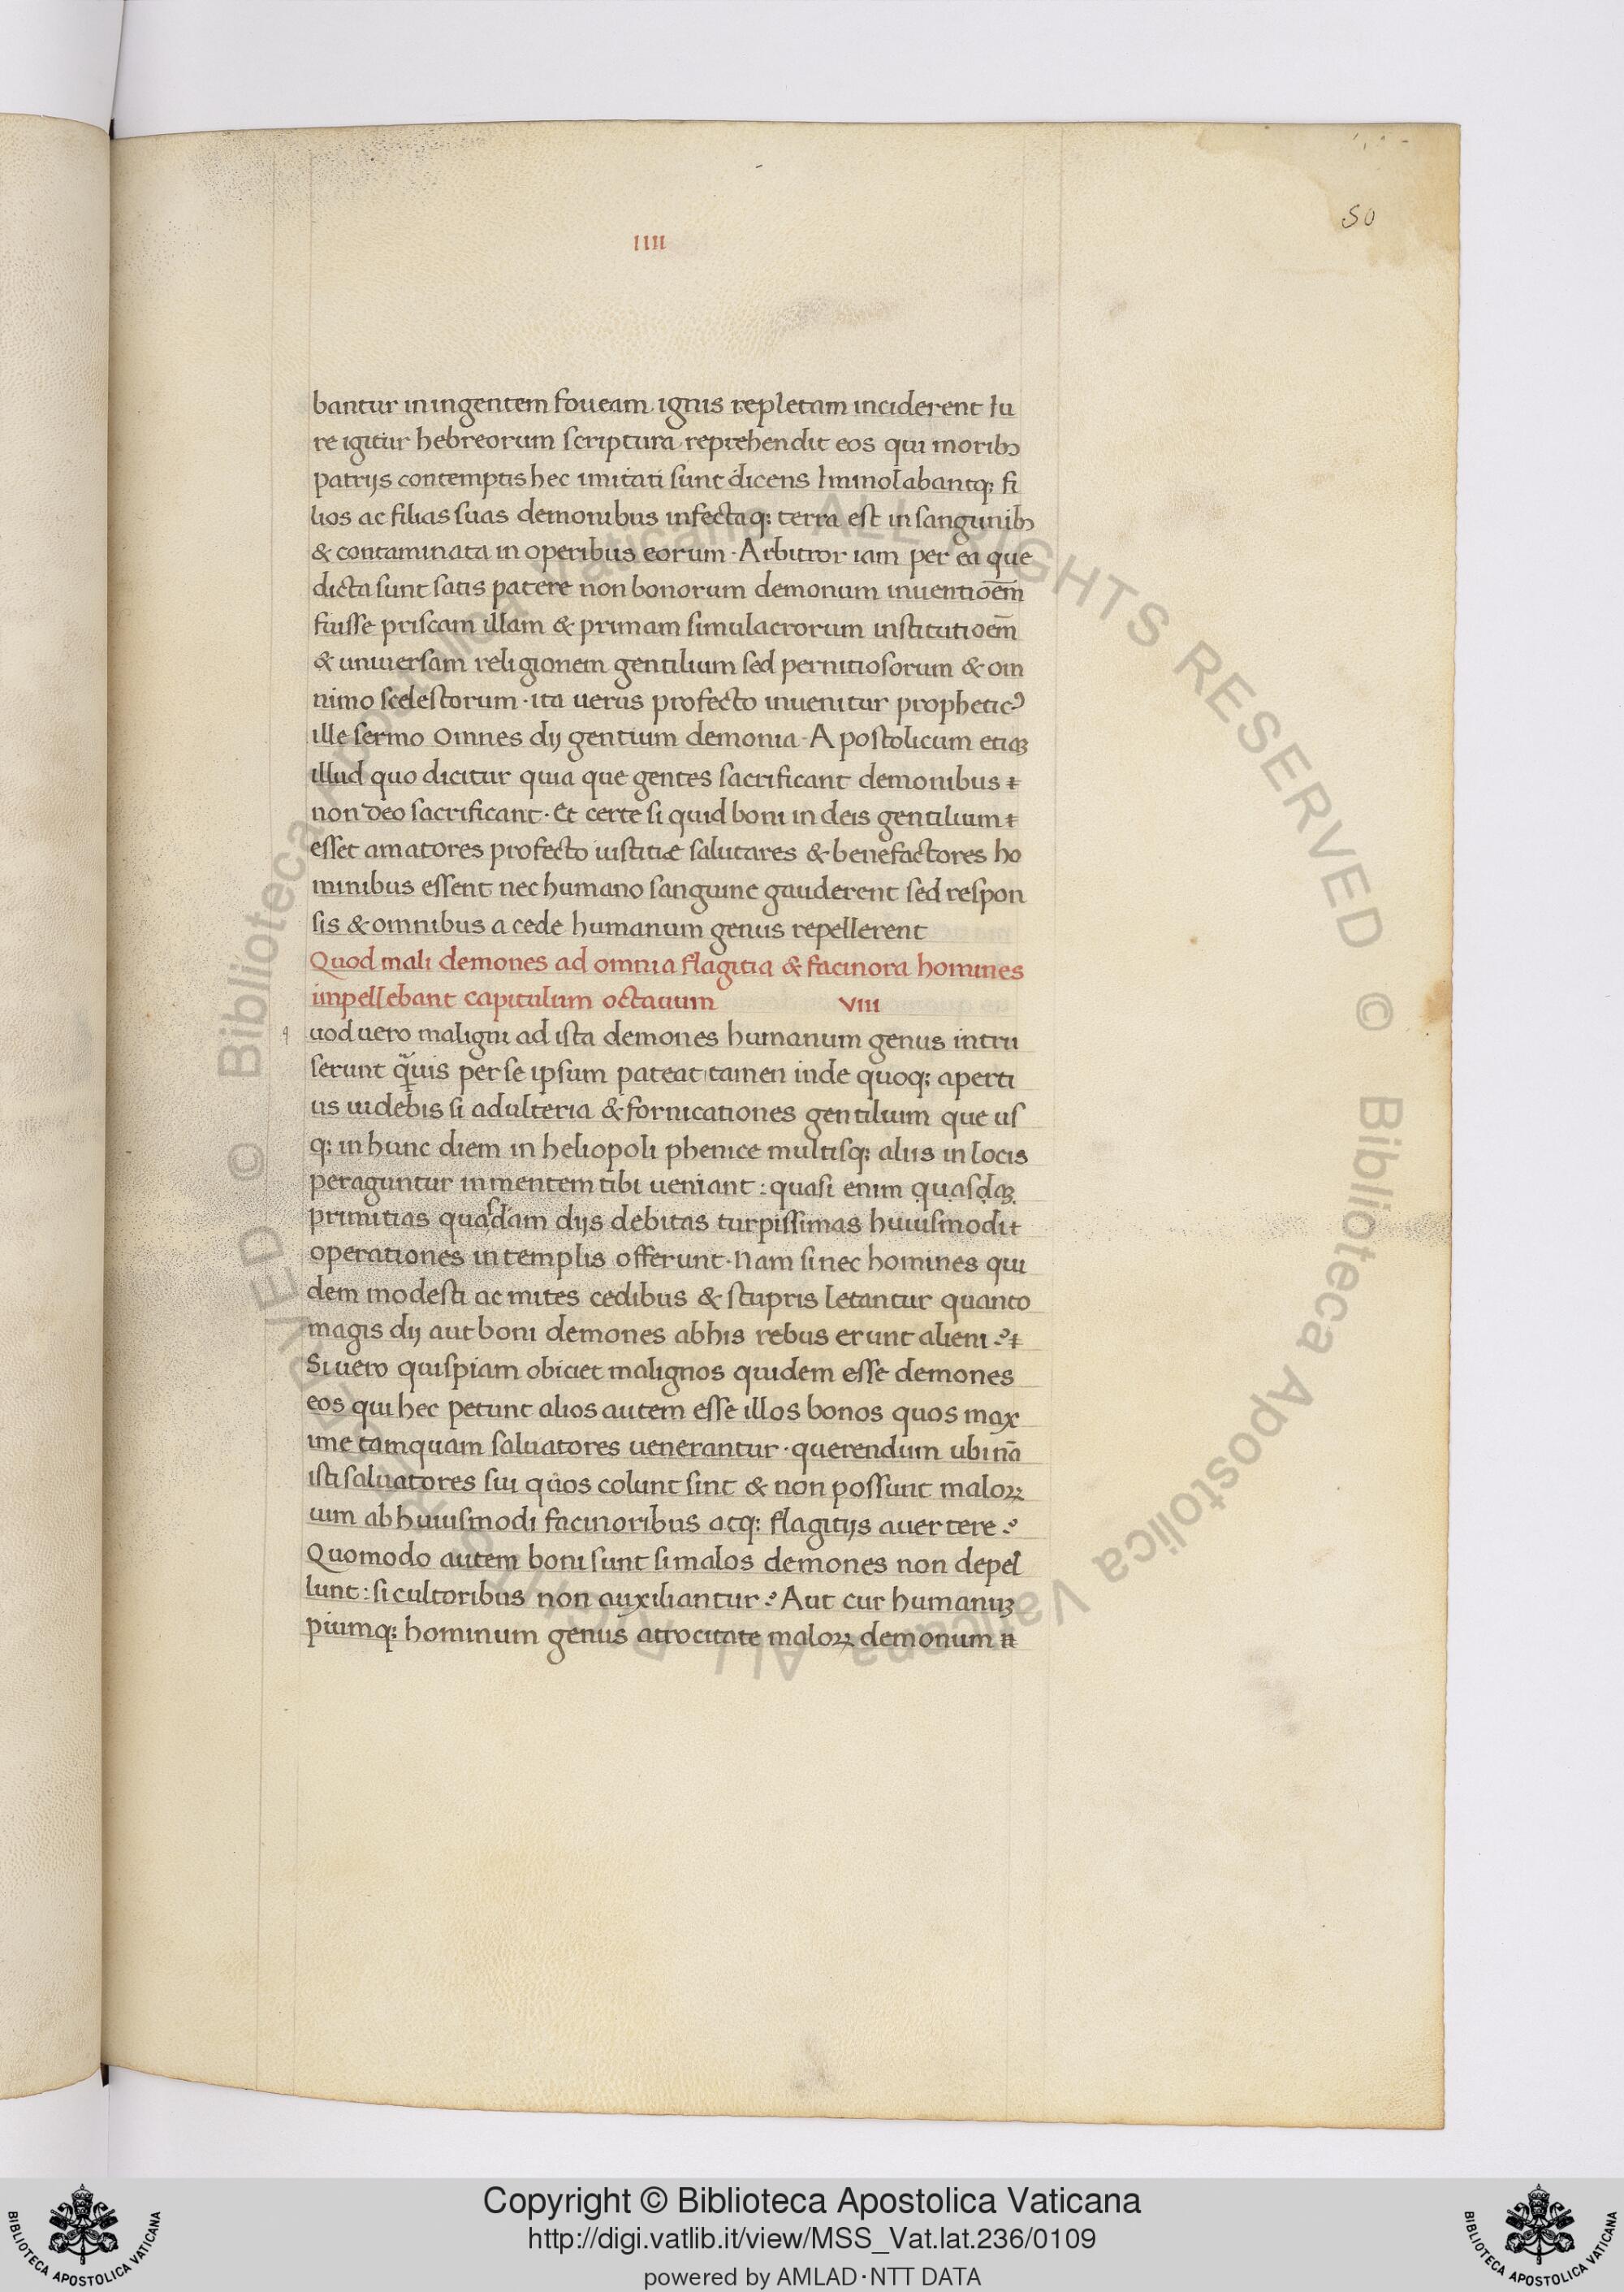 50
IIII
bantur in ingentem foueam ignis repletam inciderent Iu
re igitur hebreorum scriptura reprehendit eos qui moribꝫ
patrijs contemptis hec imitati sunt dicens Immolabantqꝫ fi
lios ac filias suas demonibus infectaqꝫ terra est in sanguinibꝫ
& contaminata in operibus eorum · Arbitror iam per ea que
dicta sunt satis patere non bonorum demonum inuentioēm
fuisse priscam illam & primam simulacrorum institutioēm
& uniuersam religionem gentilium sed pernitiosorum & om
nimo scelestorum · ita uerus profecto inuenitur propheticꝰ
ille sermo Omnes dij gentium demonia · Apostolicum etiaꝫ
illud quo dicitur quia que gentes sacrificant demonibus
non deo sacrificant · Et certe si quid boni in deis gentilium
esset amatores profecto iustitiæ salutares & benefactores ho
minibus essent nec humano sanguine gauderent sed respon
sis & omnibus a cede humanum genus repellerent
Quod mali demones ad omnia flagitia & facinora homines
impellebant capitulum octauum VIII
q uod uero maligni ad ista demones humanum genus intru
serunt q̃uis per se ipsum pateat tamen inde quoqꝫ aperti
us uidebis si adulteria & fornicationes gentilium que us
qꝫ in hunc diem in heliopoli phenice multisqꝫ aliis in locis
peraguntur in mentem tibi ueniant : quasi enim quasdaꝫ
primitias quasdam dijs debitas turpissimas huiusmodi
operationes in templis offerunt · Nam si nec homines qui
dem modesti ac mites cedibus & stupris letantur quanto
magis dij aut boni demones ab his rebus erunt alieni ?
Si uero quispiam obiciet malignos quidem esse demones
eos qui hec petunt alios autem esse illos bonos quos max
ime tamquam saluatores uenerantur · querendum ubi nā
isti saluatores sui quos colunt sint & non possunt maloꝝ
uim ab huiusmodi facinoribus atqꝫ flagitijs auertere ?
Quomodo autem boni sunt si malos demones non depel
lunt : si cultoribus non auxiliantur ? Aut cur humanuꝫ
piumqꝫ hominum genus atrocitate maloꝝ demonum
© Biblioteca Apostolica Vaticana ALL RIGHTS RESERVED © Biblioteca Apostolica Vaticana ALL RIGHTS RESERVED
Copyright © Biblioteca Apostolica Vaticana
http://digi.vatlib.it/view/MSS_Vat.lat.236/0109
powered by AMLAD·NTT DATA
BIBLIOTECA APOSTOLICA VATICANA
BIBLIOTECA APOSTOLICA VATICANA